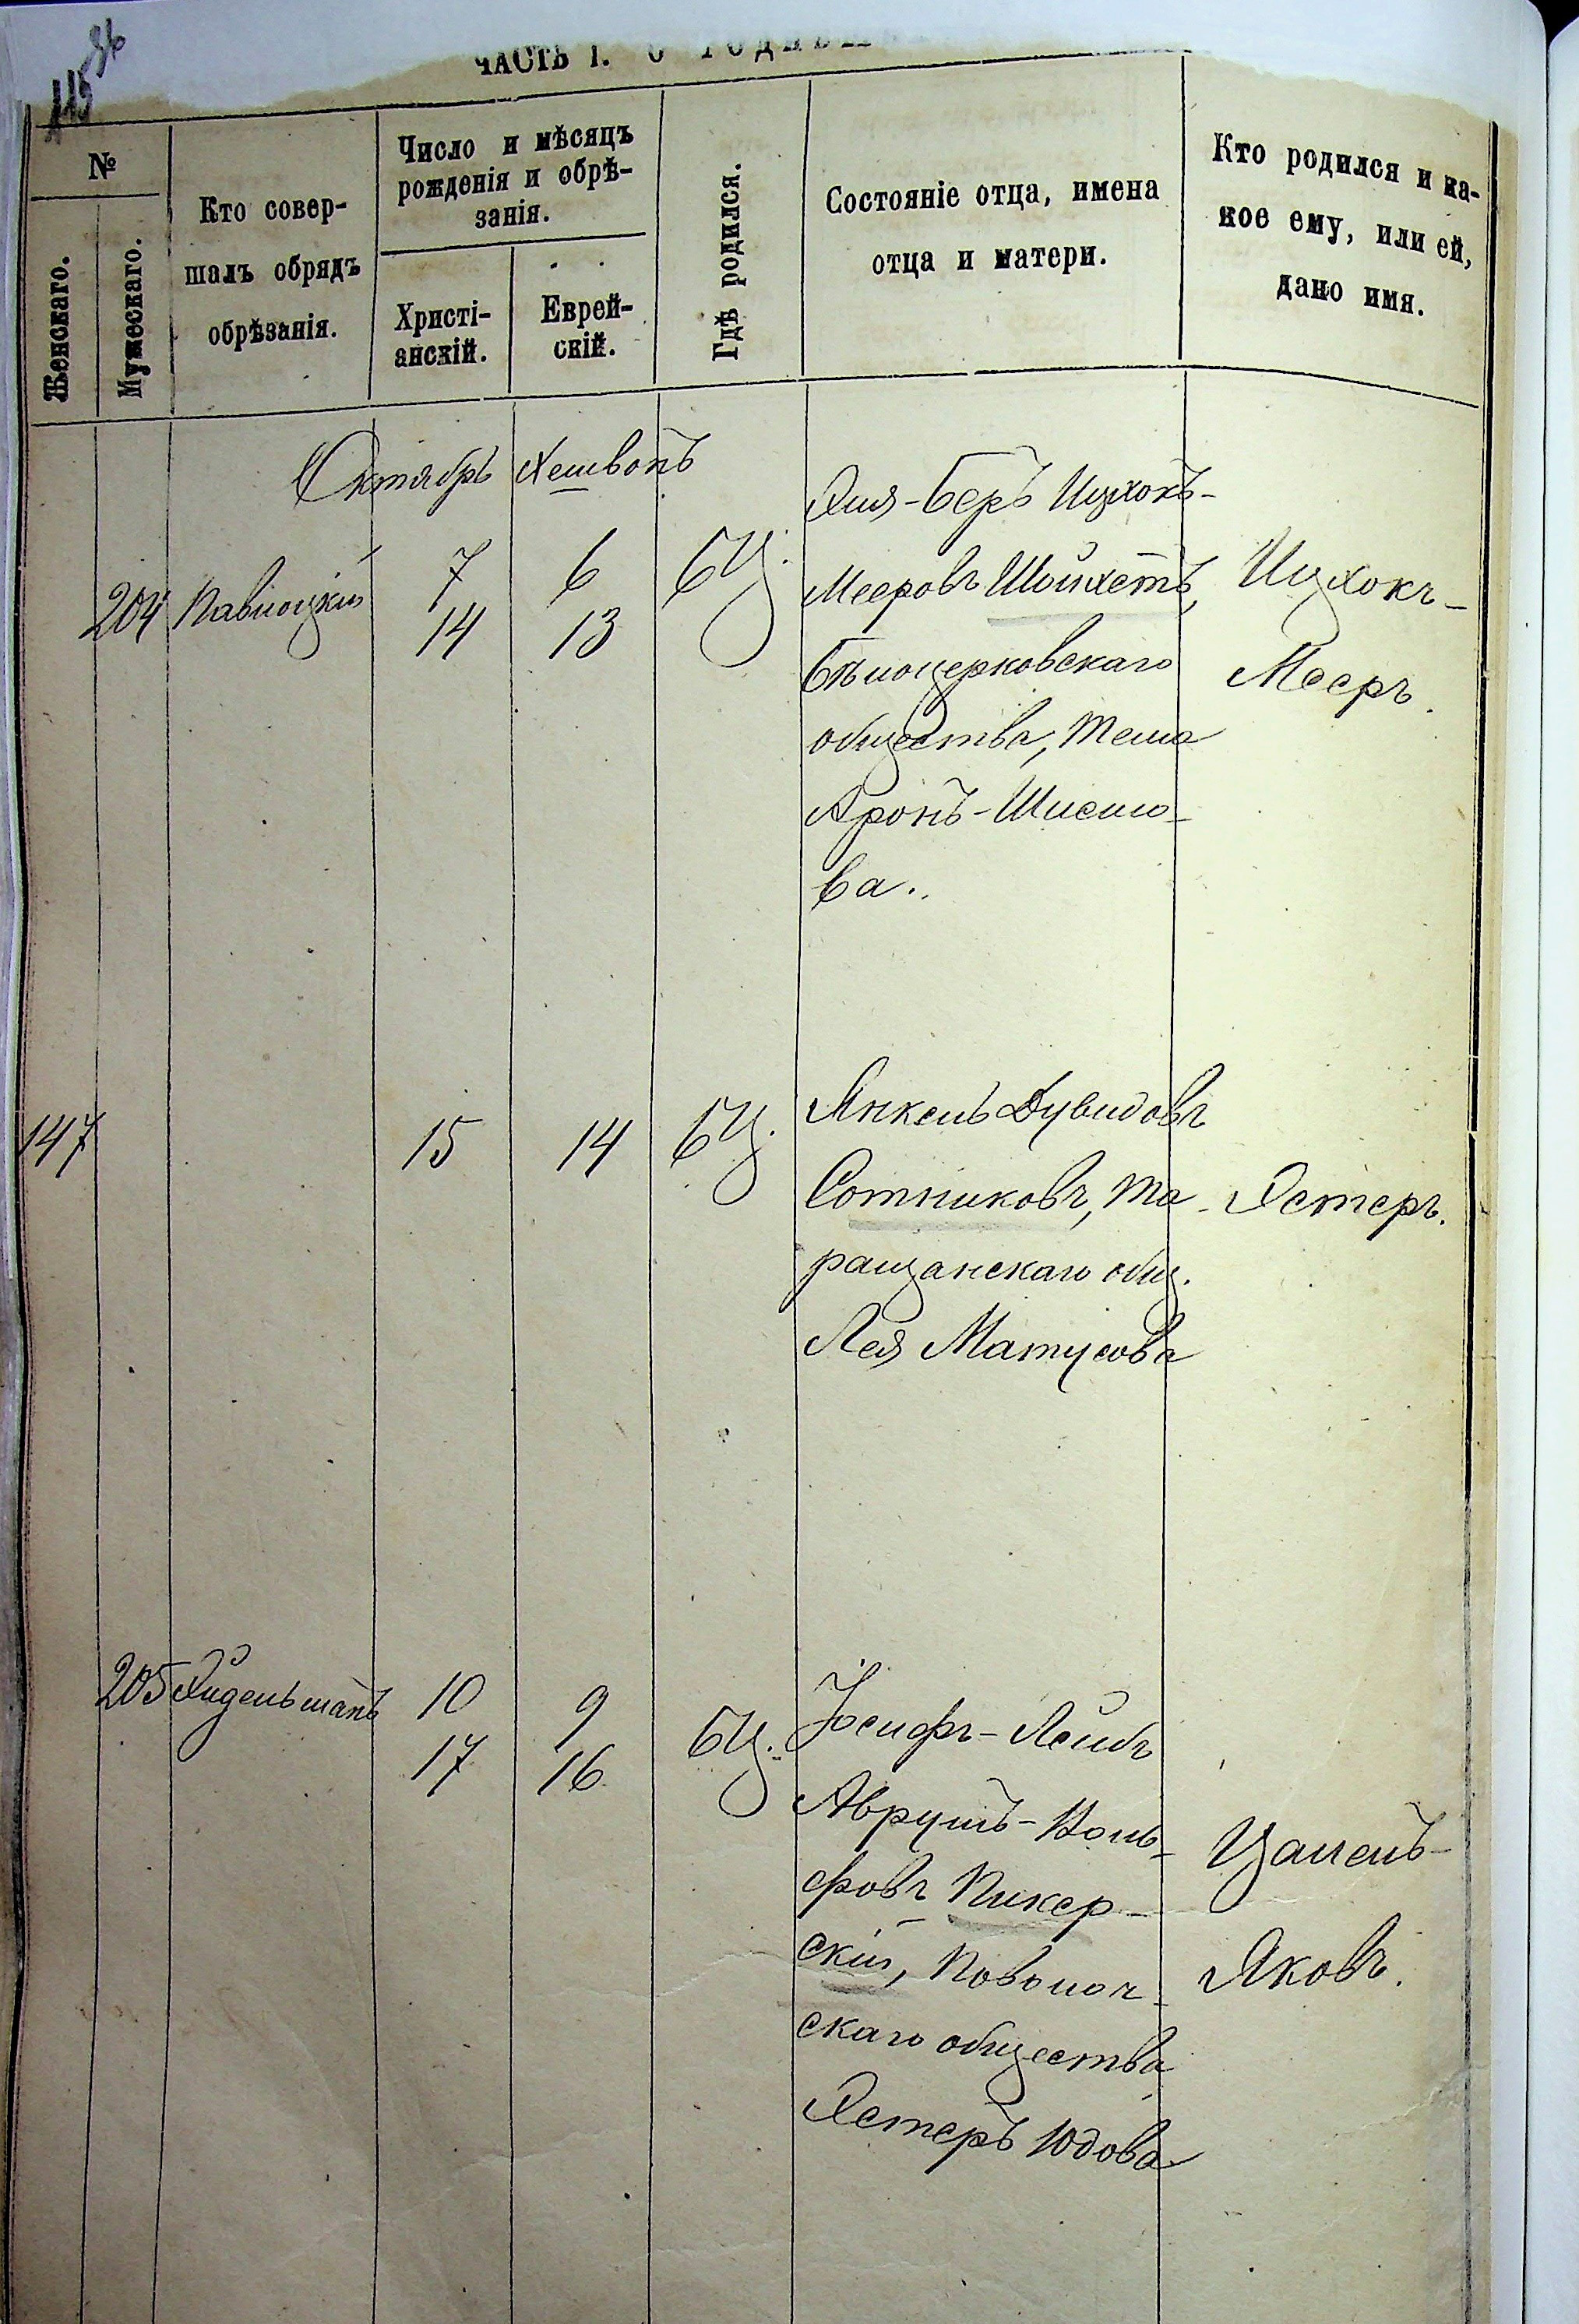 115
36
ЧАСТЬ I. О РОДИВШ
№
Женскаго.
Мужескаго.
Кто совер-
шалъ обрядъ
обрѣзанія.
Число и мѣсяцъ
рожденія и обрѣ-
занія.
Христі-
анскій.
Еврей-
скій.
Гдѣ родился.
Состояніе отца, имена
отца и матери.
Кто родился и ка-
кое ему, или ей,
дано имя.
Октябрь Хешвонъ
204 Павлоцкій
7 6 БЦ.
14 13
Эля-Беръ Ицхокъ-
Мееровъ Шойхетъ,
Бѣлоцерковскаго
общества,
Аронъ-Шлемо-
ва.
Ицхокъ-
Мееръ.
147 15 14 БЦ.
Янкель Дувидовъ
Сотниковъ, Та-
ращанскаго общ.
Лея Матусова
Эстеръ.
205 Эйдельманъ 10 9 БЦ.
17 16
Іосифъ-Лейбъ
Аврумъ-Воль-
фовъ Пикер-
скій,
скаго общества
Эстеръ Юдова
Цалель-
Яковъ.